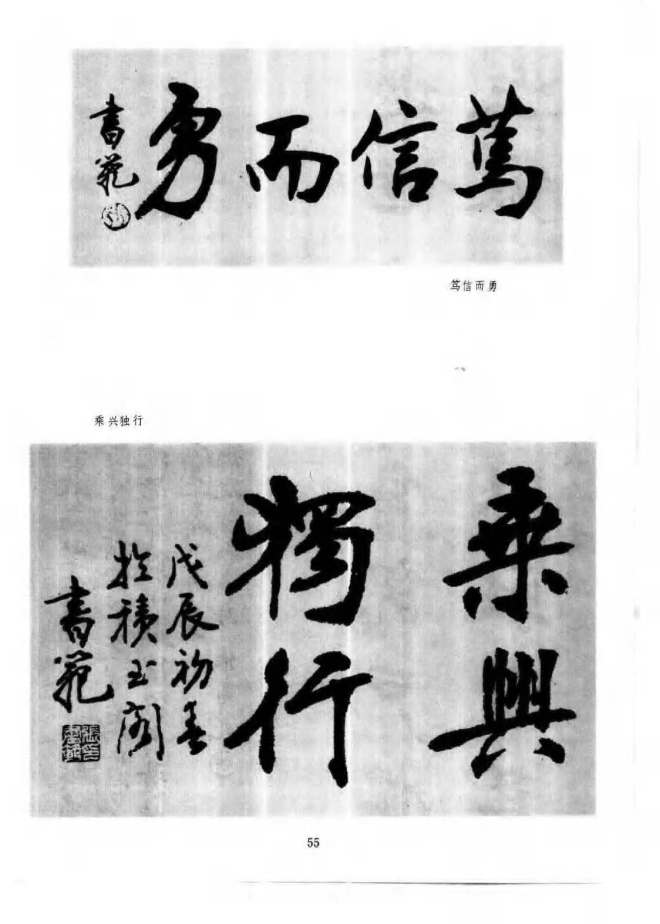 篤信而勇
書範
笃信而勇
乘兴独行
乘興
獨行
戊辰初春
於積玉阁
書範
55